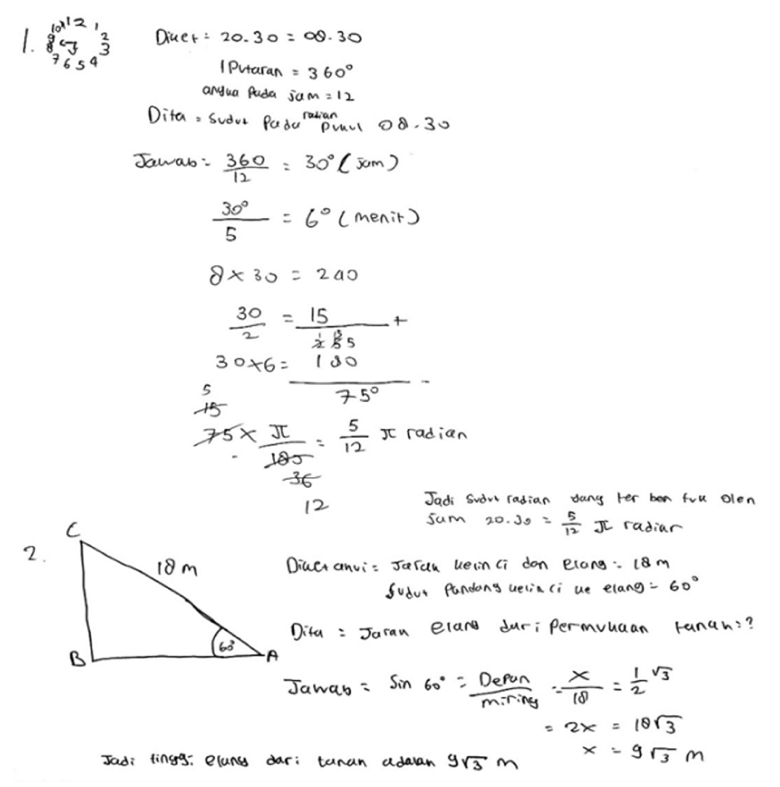 1. 10 11 12 1
9 2
8 3
7 6 5 4
Diket = 20.30 = 08.30
1 Putaran = 360°
angka pada jam = 12
Dita = Sudut Pada radian Pukul 08.30
Jawab = 360/12 = 30° (jam)
30°/5 = 6° (menit)
8 × 30 = 240
30/2 = 15 +
255
30×6 = 180
75° -
5
15
75 × π/180 = 5/12 π radian
36
12
Jadi Sudut radian yang terbentuk oleh
jam 20.30 = 5/12 π radian
2.
C
18 m
60°
B
A
Diketahui = Jarak kelinci dan elang = 18 m
Sudut Pandang kelinci ke elang = 60°
Dita = Jarak elang dari Permukaan tanah = ?
Jawab = Sin 60° = Depan/miring = x/18 = 1/2 √3
= 2x = 18√3
x = 9√3 m
Jadi tinggi elang dari tanah adalah 9√3 m